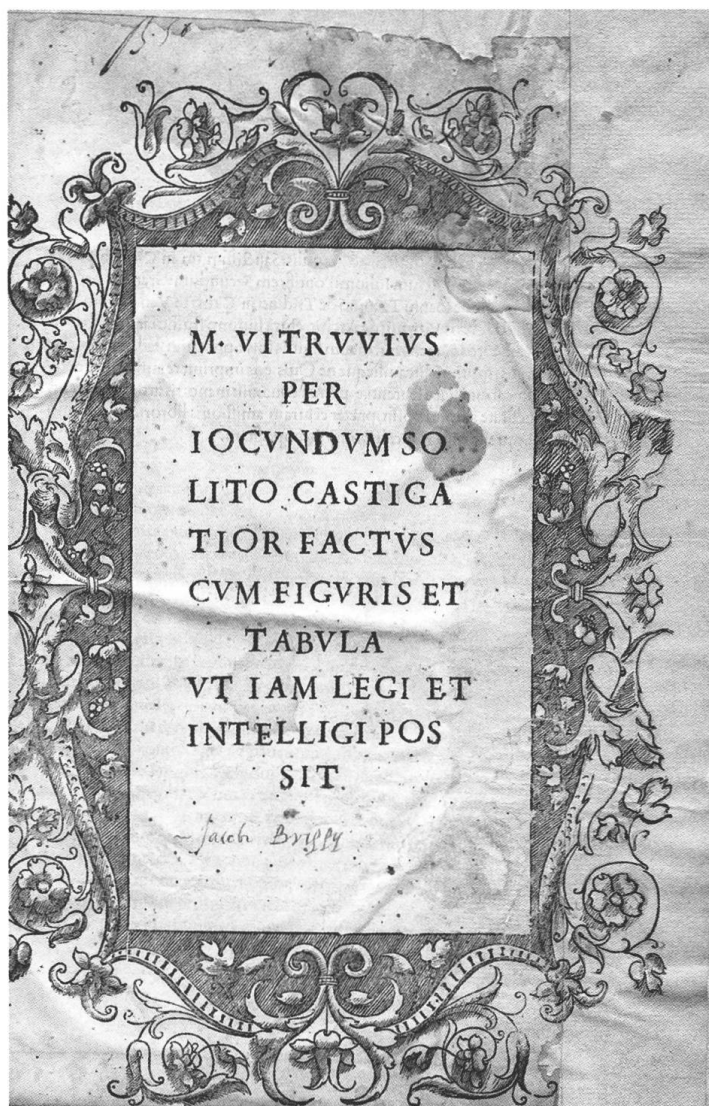 M. VITRVVIVS
PER
IOCVNDVM SO
LITO CASTIGA
TIOR FACTVS
CVM FIGVRIS ET
TABVLA
VT IAM LEGI ET
INTELLIGI POS
SIT